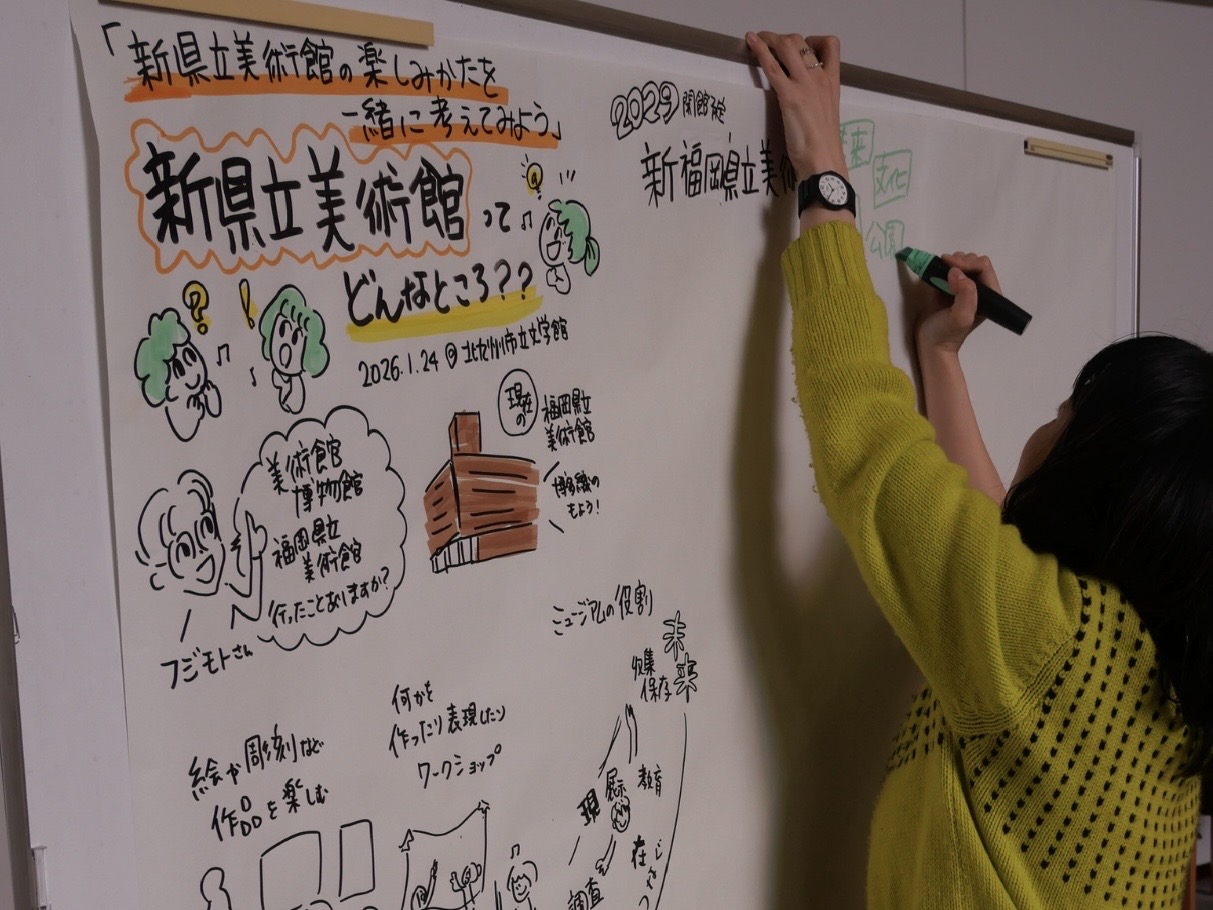 「新県立美術館の楽しみかたを
一緒に考えてみよう」
新県立美術館って
どんなところ??
2026.1.24@北九州市立文学館
?
!
美術館
博物館
福岡県立
美術館
行ったことありますか?
フジモトさん
現在
の
福岡県立
美術館
博多織の
もよう!
絵や彫刻など
作品を楽しむ
何かを
作ったり表現したり
ワークショップ
ミュージアムの役割
未
来
収集
保存
展示
教育
現
在
調査
2029開館予定
新福岡県立美術
文化
公園